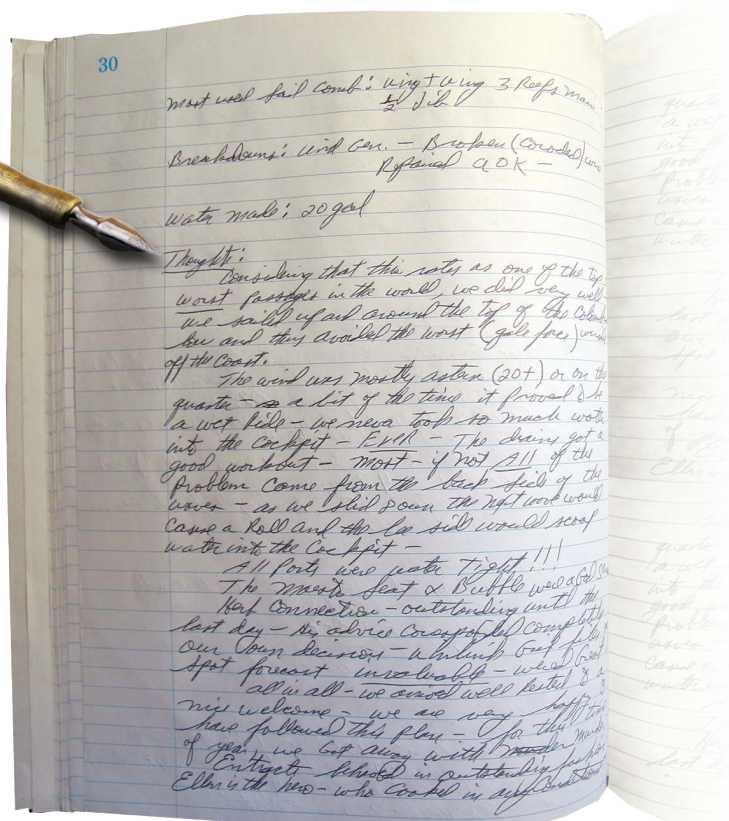 30
Most used sail comb: wing + wing 3 Reefs main
1/2 Jib
Breakdowns: Wind Gen. – Broken (Coroded) wire
Repaired A OK –
Water made: 20 gal
Thoughts:
Considering that this rates as one of the top
worst passages in the world, we did very well –
we sailed up and around the top of the Colomb
low and thus avoided the worst (gale force) winds
off the Coast.
The wind was mostly astern (20+) or on the
quarter – so a lot of the time it proved to be
a wet Ride – we never took so much water
into the Cockpit – EVER – The drains got a
good workout – most – if not All of the
Problem came from the back side of the
waves – as we slid down the next wave would
cause a Roll and the lee side would scoop
water into the Cockpit –
All Ports were water Tight!!!
The Seat & Bubble were a God
Herb Connection – outstanding until the
last day – His advice completely
our own decisions – grib files
spot forecast invaluable – were Great
all in all – we arrived well rested & a
nice welcome – we are very happy to
have followed this plan – for this time
of year, we Got away with
behaved in outstanding fashion
Ellen is the hero – who Cooked in any Conditions